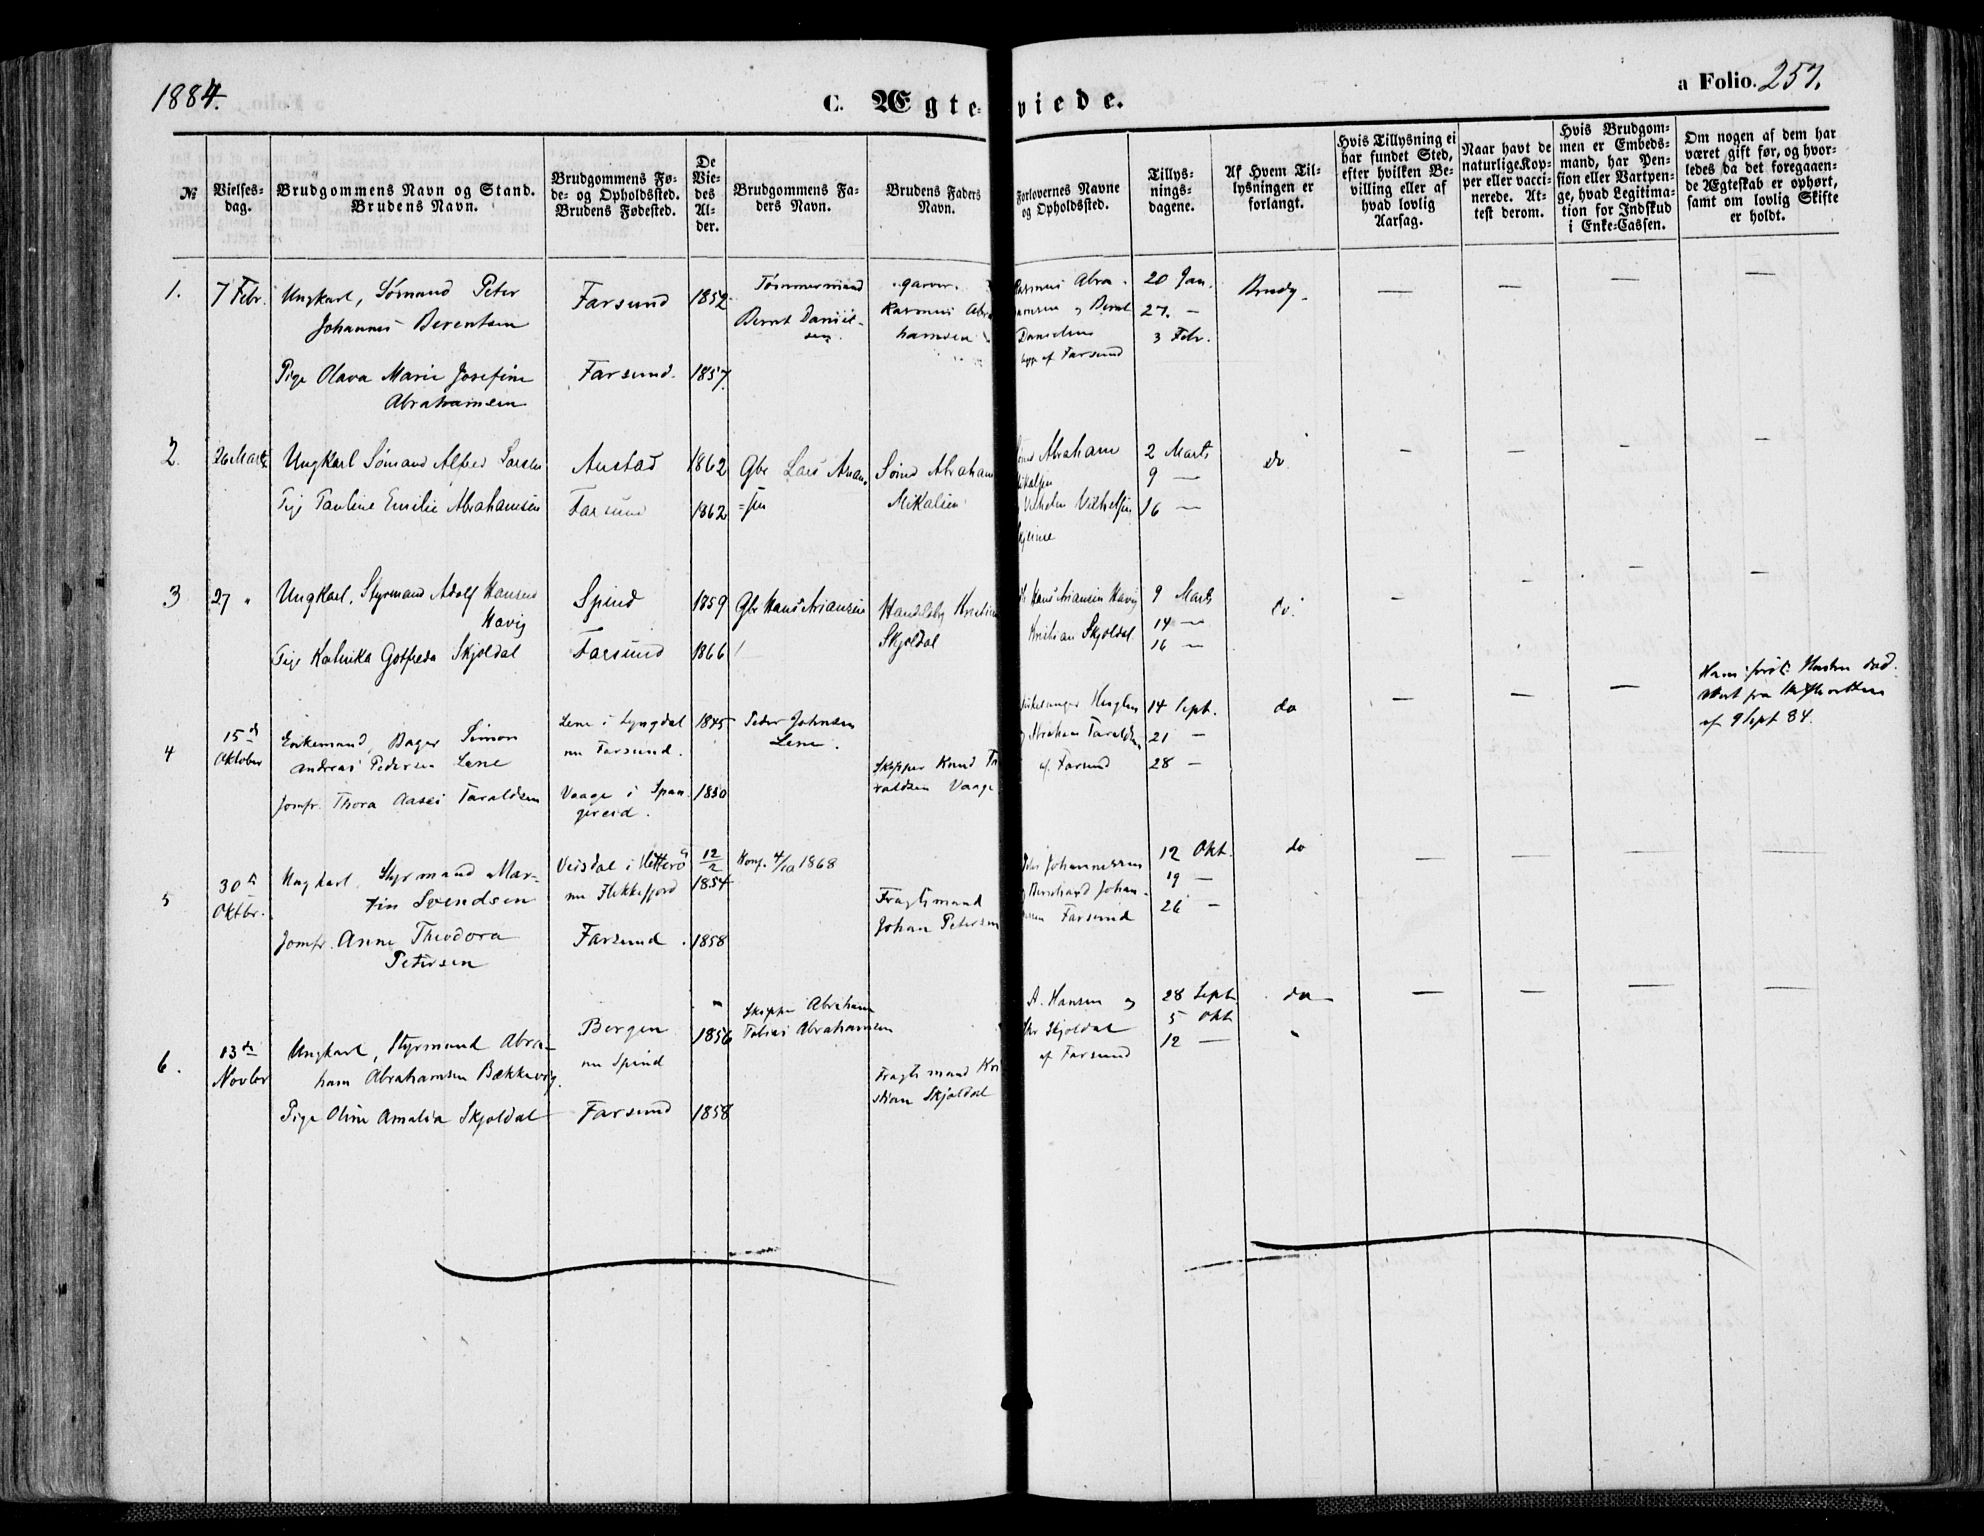 1884.
C. Ægteviede.
a Folio. 257.
№
Vielses-
dag.
Brudgommens Navn og Stand.
Brudens Navn.
Brudgommens Fø-
de- og Opholdssted.
Brudens Fødested.
De
Vie-
des
Al-
der.
Brudgommens Fa-
ders Navn.
Brudens Faders
Navn.
Forlovernes Navne
og Opholdssted.
Tillys-
nings-
dagene.
Af Hvem Til-
lysningen er
forlangt.
Hvis Tillysning ei
har fundet Sted,
efter hvilken Be-
villing eller af
hvad lovlig
Aarsag.
Naar havt de
naturlige Kop-
per eller vacci-
nerede. At-
test derom.
Hvis Brudgom-
men er Embeds-
mand, har Pen-
sion eller Vartpen-
ge, hvad Legitima-
tion for Indskud
i Enke-Cassen.
Om nogen af dem har
været gift før, og hvor-
ledes da det foregaaen-
de Ægteskab er ophørt,
samt om lovlig Skifte
er holdt.
1. 7 Febr. Ungkarl, Sømand Peter
Johannes Berentsen
Farsund 1852
Tømmermand
Bernt Daniel-
sen.
garver
Rasmus Abra
hamsen
Rasmus Abra-
hamsen og Bernt
Danielsen
af Farsund
20 Jan.
27. —
3 Febr.
Brudg. — — — —
Pige Olava Marie Josefine
Abrahamsen
Farsund. 1857.
2. 26 Marts Ungkarl Sømand Alfred Larsen
Austad 1862 Gbr Lars
=sen
Sømd Abraham
Mikalsen
Abraham
Mikalsen
Vilhelm
2 Marts
9 —
16 —
do — — — —
Pige Pauline Emilie Abrahamsen
Farsund 1862
3 27 " Ungkarl, Styrmand Adolf Hansen
Havig
Spind 1859 Gbr Hans Ariansen
Kristian
Skjoldal
Hans Ariansen Havig
Kristian Skjoldal
9 Marts
14 —
16 —
do. — — — —
Pige Katrika Gotfreda Skjoldal
Farsund 1866
4 15de
Oktober
Enkemand, Bager Simon
Andreas Pedersen Lene
Lene i Lyngdal
nu Farsund.
1845 Peder Johnsen
Lene.
Skipper Knud Ta
raldsen Vaage
Abraham Taraldsen
af Farsund
14 Sept.
21 —
28 —
do — — —
Hans første Hustru død.
Attest fra Skifteretten
af 9 Sept 84.
Jomfr. Thora Aase Taraldsen
Vaage i Span-
gereid.
1850
5 30te
Oktbr.
Ungkarl, Styrmand Mar-
tin Svendsen
Veisdal i Hitterø
nu Flekkefjord
12/2
1854
Konf. 4/10 1868
Fragtemand
Johan Petersen
Johannessen
og Berntsand Johan-
nessen Farsund
12 Okt.
19 —
26 —
do — — — —
Jomfr. Anne Theodora
Petersen
Farsund. 1858
6. 13de
Novbr
Ungkarl, Styrmand Abra-
ham Abrahamsen Bækkevig.
Bergen
nu Spind
1856
Skipper Abraham
Tobias Abrahamsen
Fragtemand Kri
stian Skjoldal
A. Hansen og
Chr Skjoldal
af Farsund
28 Sept.
5 Okt
12 —
do — — — —
Pige Oline Amalia Skjoldal
Farsund 1858